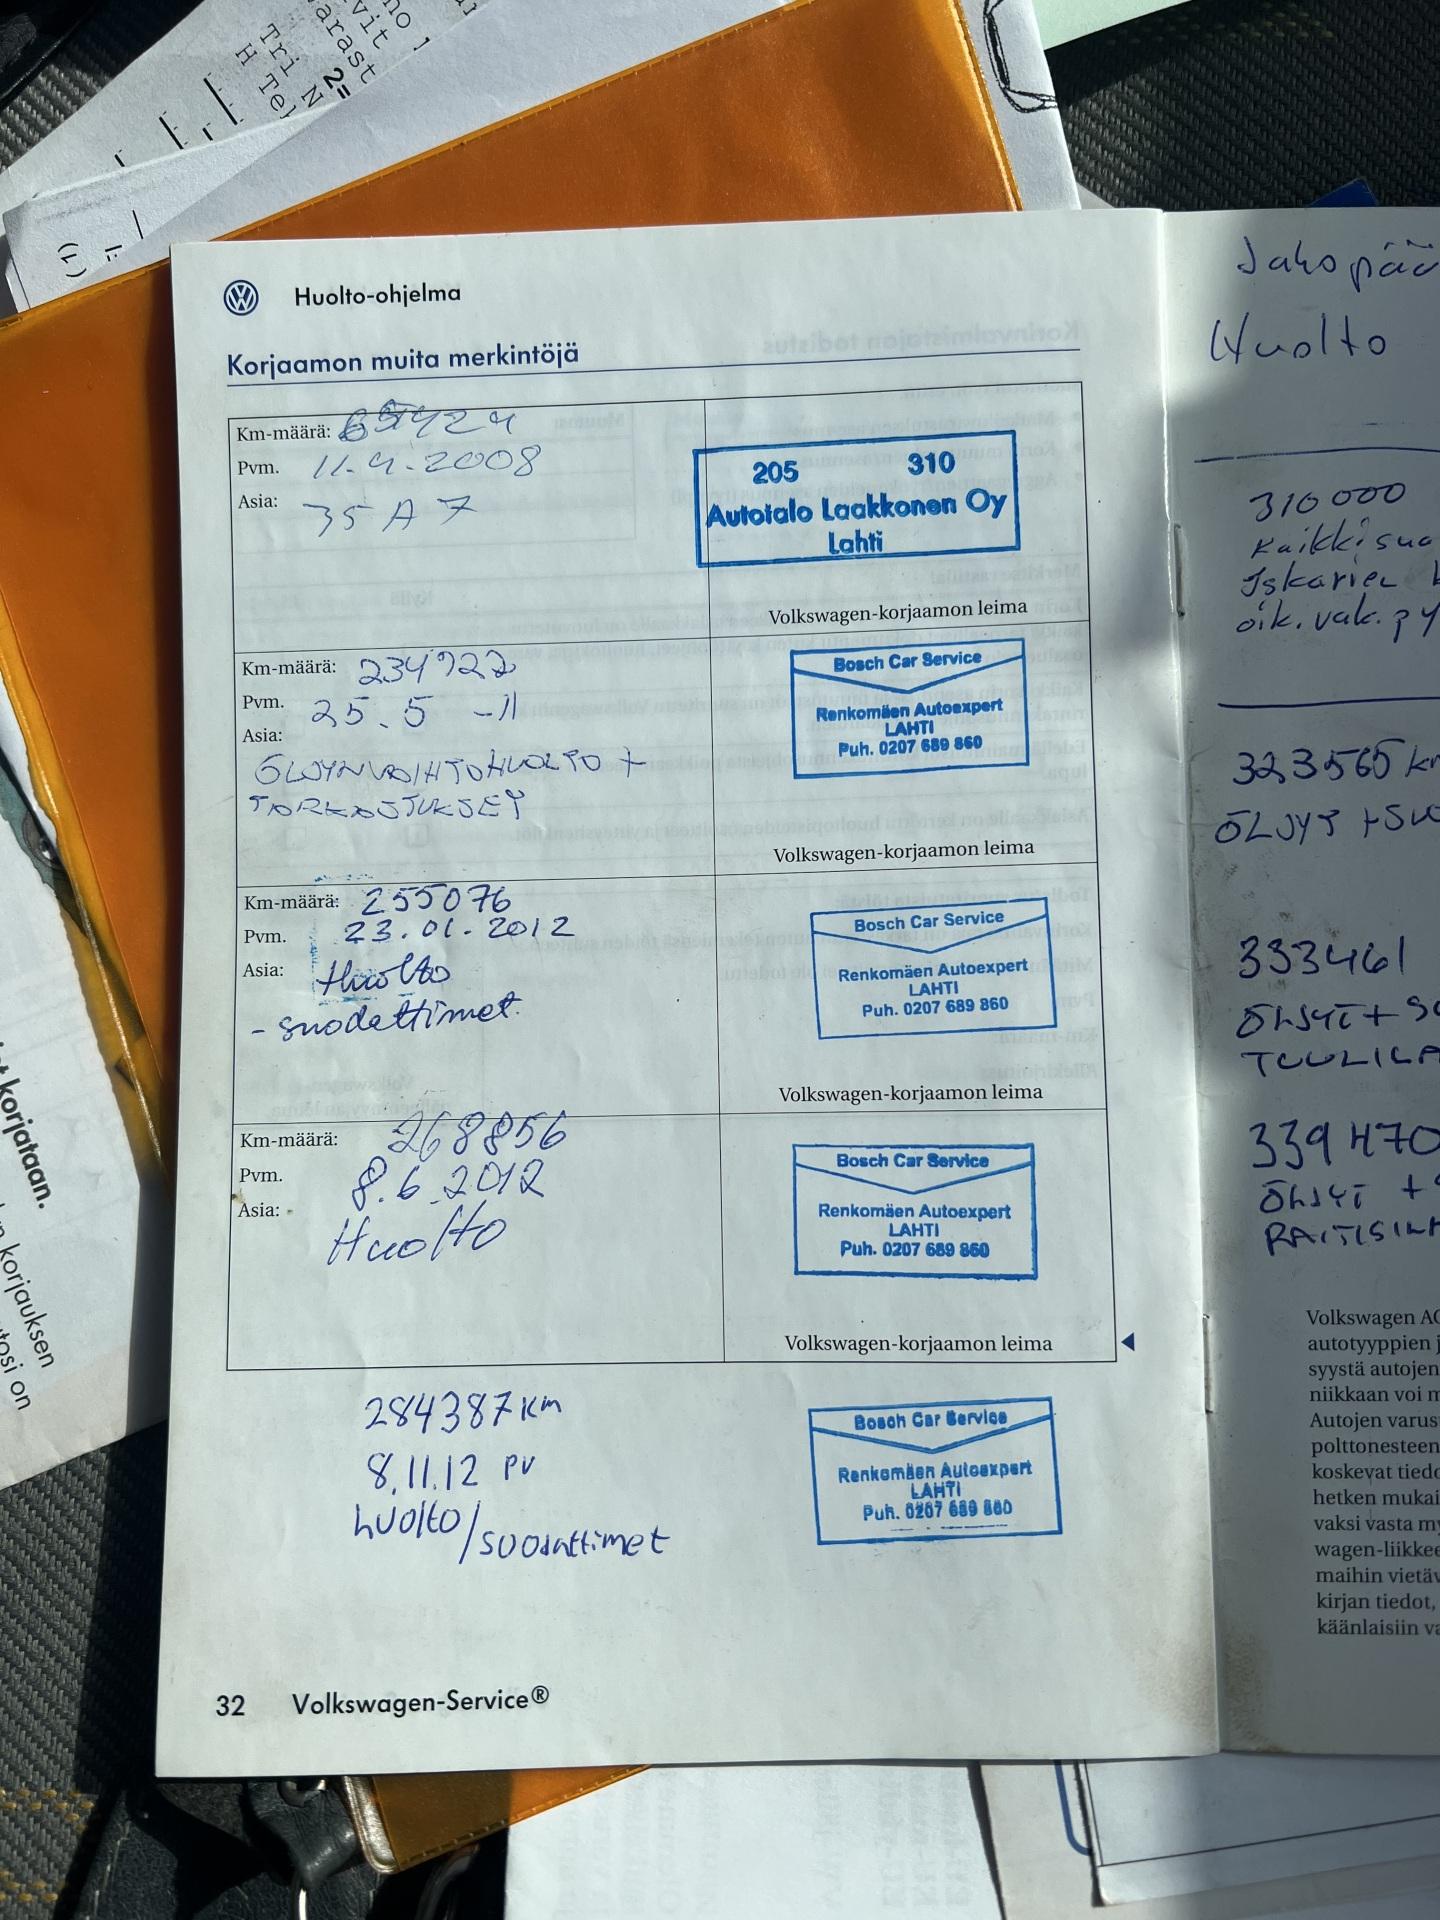 Huolto-ohjelma
Korjaamon muita merkintöjä
Km-määrä:
Pvm. 11.4.2008
Asia: 35 A 7
205 310
Autotalo Laakkonen Oy
Lahti
Volkswagen-korjaamon leima
Km-määrä: 234722
Pvm. 25.5 -11
Asia:
ÖLJYNVAIHTOHUOLTO +
TARKASTUKSET
Bosch Car Service
Renkomäen Autoexpert
LAHTI
Puh. 0207 689 860
Volkswagen-korjaamon leima
Km-määrä: 255076
Pvm. 23.01.2012
Asia: Huolto
- suodattimet.
Bosch Car Service
Renkomäen Autoexpert
LAHTI
Puh. 0207 689 860
Volkswagen-korjaamon leima
Km-määrä: 268856
Pvm. 8.6.2012
Asia: Huolto
Bosch Car Service
Renkomäen Autoexpert
LAHTI
Puh. 0207 689 860
Volkswagen-korjaamon leima
284387 km
8.11.12 PV
huolto/suodattimet
Bosch Car Service
Renkomäen Autoexpert
LAHTI
Puh. 0207 689 860
32 Volkswagen-Service®
Jakopää
Huolto
310 000
Kaikki suo
Iskarien
oik. vak. py
323565 km
ÖLJYT + SUO
333461
ÖLJYT + SU
TUULILA
339470
ÖLJYT +
RAITISIL
Volkswagen AG
autotyyppien j
syystä autojen
niikkaan voi m
Autojen varus
polttonesteen
koskevat tiedo
hetken mukai
vaksi vasta my
wagen-liikkee
maihin vietäv
kirjan tiedot,
käänlaisiin va
t korjataan.
n korjauksen
tosi on